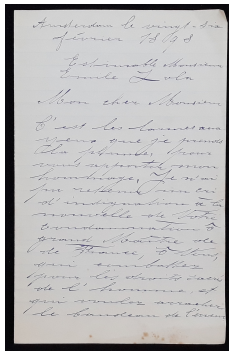 Amsterdam le vingt-six
février 1898
Estimable Monsieur
Emile Zola
Mon cher Monsieur
C'est les larmes aux
yeux que je prends
la plume, pour
vous apporter mon
hommage. Je n'ai
pu retenir un cri
d'indignation à la
nouvelle de votre
condamnation O
grand Maître de
la France, O Vous,
qui combattez
pour les droits
de l'homme et
qui voulez arracher
le bandeau de